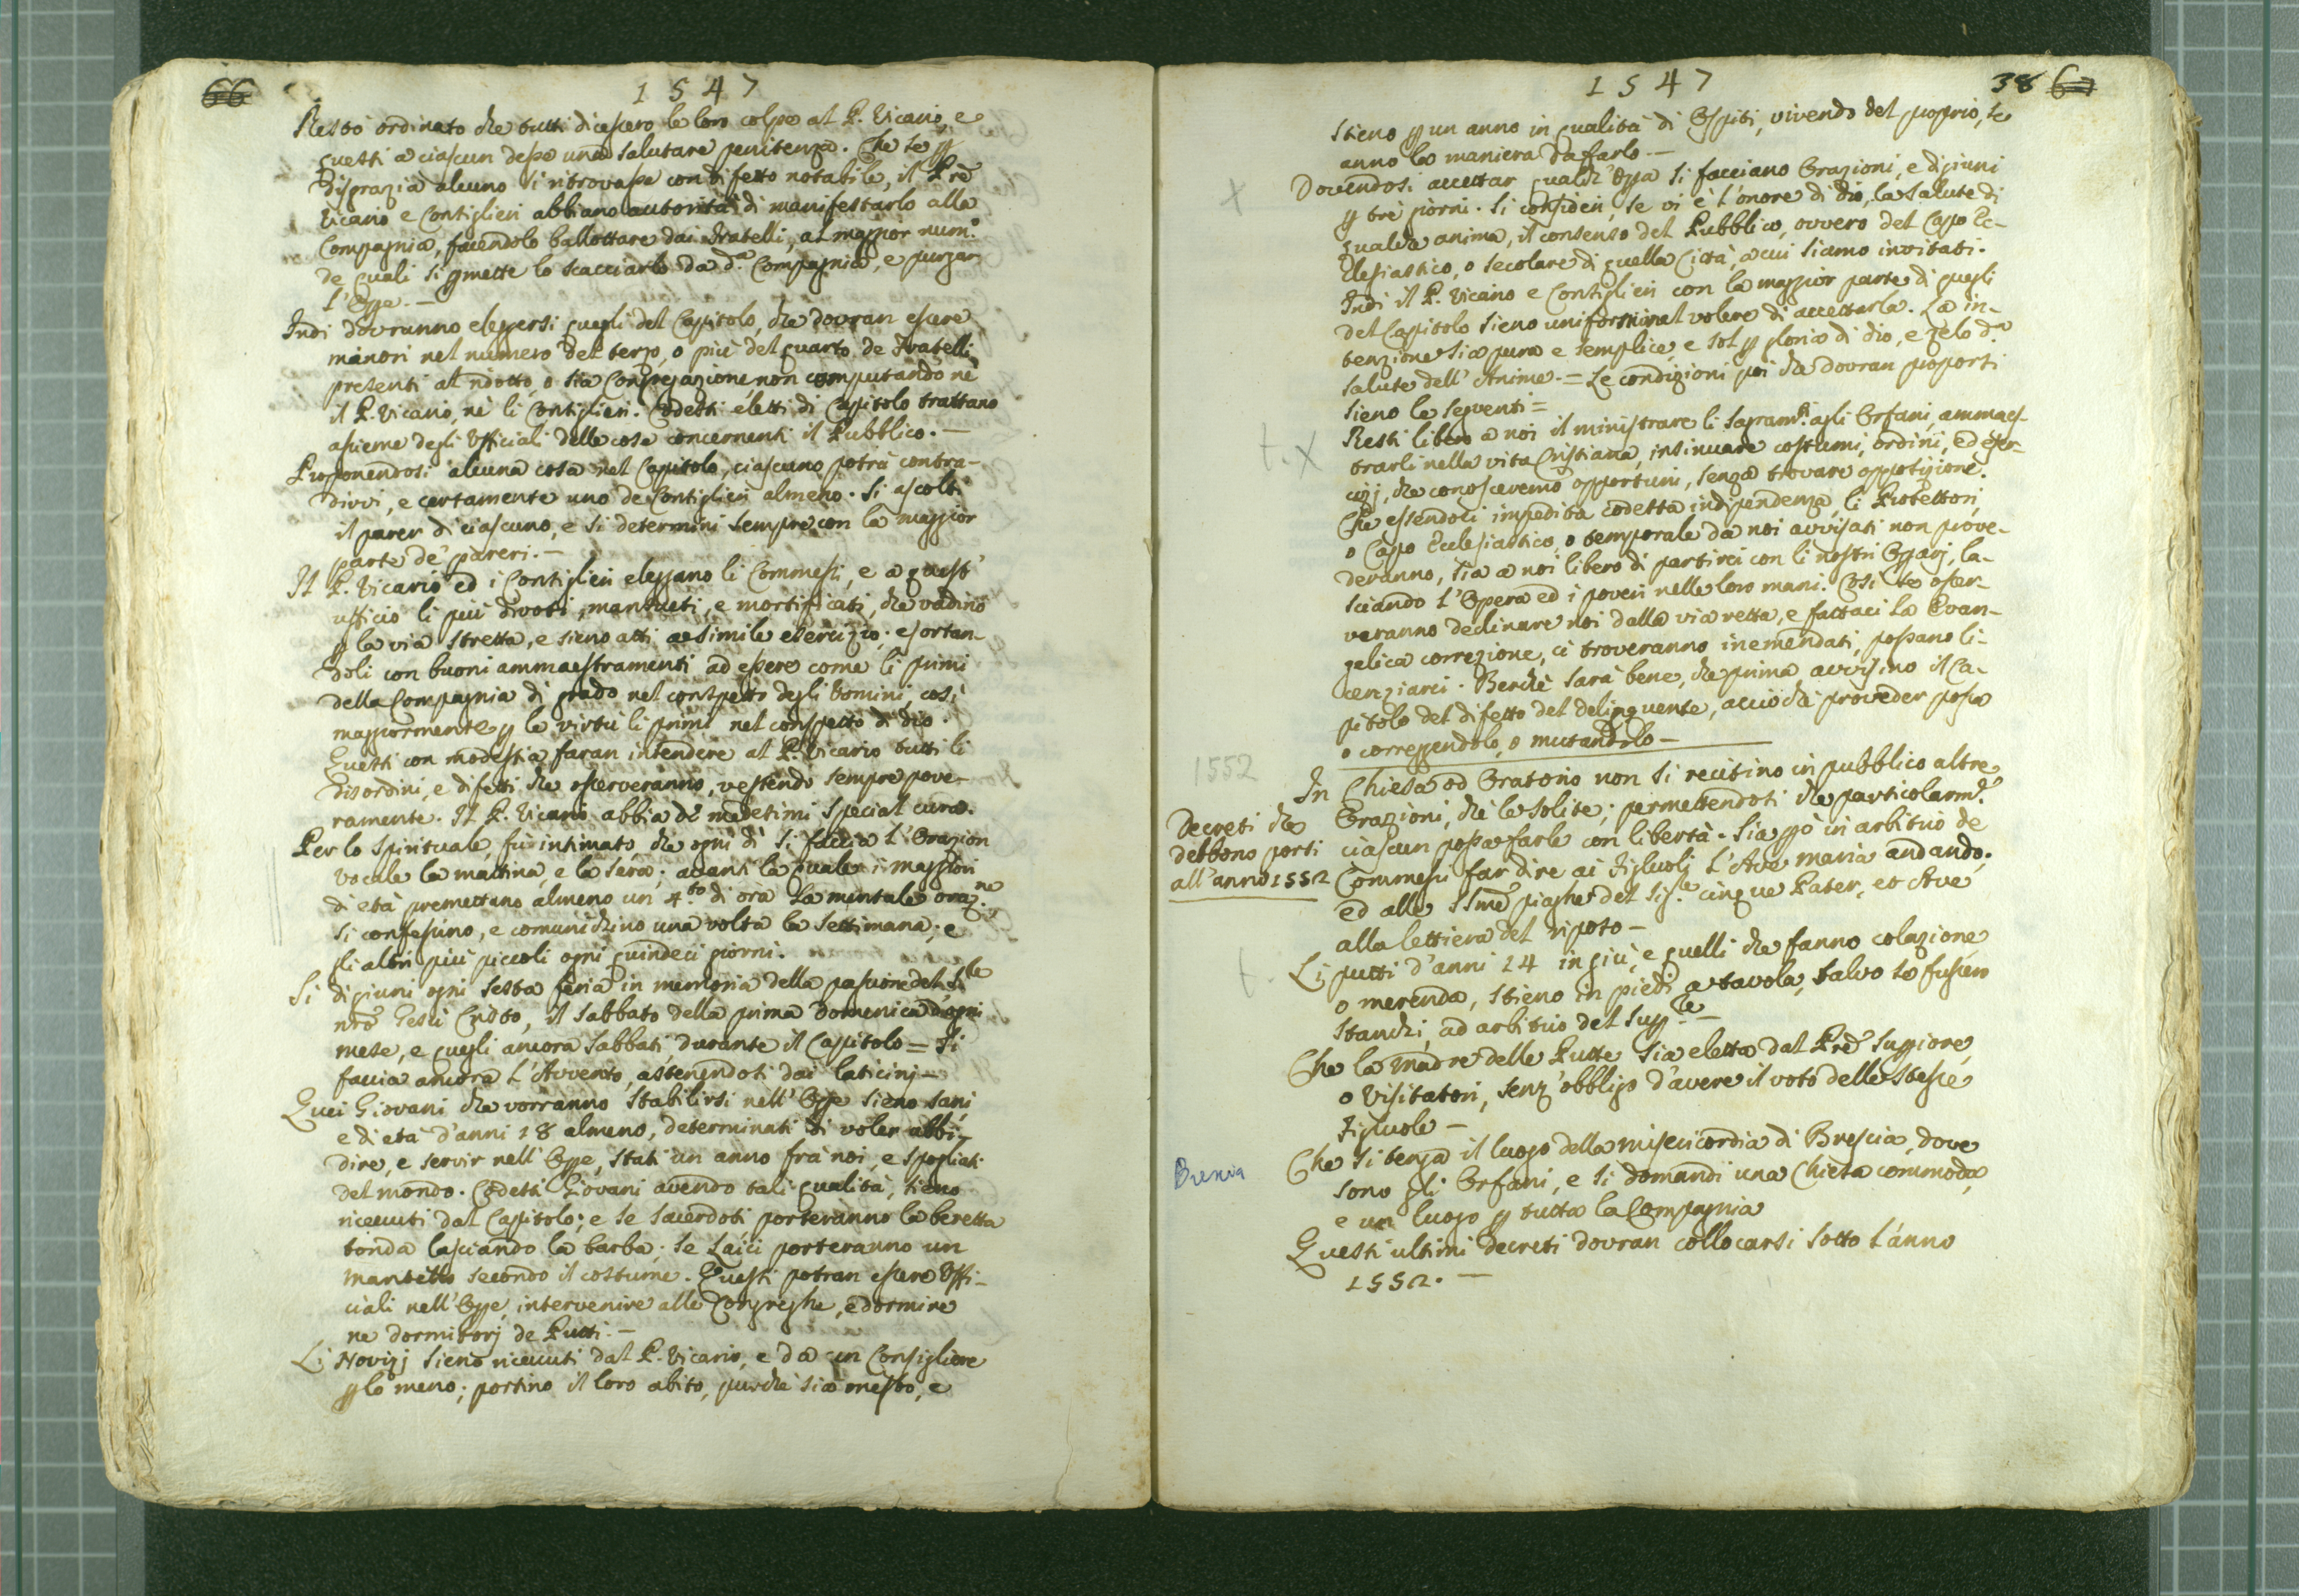 66
1547
Restò ordinato che tutti dicessero le loro colpe al P. Vicario, e
questi a ciascun desse una salutare penitenza. Che se p
disgrazia alcuno si ritrovasse con difetto notabile, il Prē
Vicario e Consiglieri abbiano autorità di manifestarlo alla
Compagnia, facendolo ballottare dai Fratelli, al maggior num.º
de quali si pmette lo scacciarlo da d.ª Compagnia, e purgar
l'Opp.e. —
Indi dovranno eleggersi quegli del Capitolo, che dovran essere
minori nel numero del terzo, o più del quarto de Fratelli
presenti al ridotto, o sia Congregazione, non computando nè
il P. Vicario, nè li Consiglieri. Codesti eletti di Capitolo trattano
assieme degli Ufficiali delle cose concernenti il Pubblico. —
Proponendosi alcuna cosa nel Capitolo, ciascuno potrà contra-
dirvi, e certamente uno de Consiglieri almeno. Si ascolti
il parer di ciascuno, e si determini sempre con la maggior
parte de' pareri. —
Il P. Vicario ed i Consiglieri eleggano li Commessi, e a quest'
ufficio li più divoti, mansueti, e mortificati, che vadino
p la via stretta, e sieno atti a simile esercizio; esortan-
doli con buoni ammaestramenti ad essere come li primi
della Compagnia di grado nel conspetto degli Uomini, così
maggiormente p le virtù li primi nel conspetto di Dio.
Questi con modestia faran intendere al P. Vicario tutti li
disordini, e difetti che osserveranno, vestendo sempre pove-
ramente. Il P. Vicario abbia de medesimi special cura.
Per lo spirituale, fu intimato che ogni dì si faccia l'Orazion
vocale la mattina, e la sera; avanti la quale i maggiori
di età premettano almeno un 4.to di ora la mentale oraz.ne
Si confessino, e comunichino una volta la settimana; e
gli altri più piccoli ogni quindeci giorni.
Si digiuni ogni sesta feria in memoria della passione del S.re
nrō Gesù Cristo, il sabbato della prima Domenica d'ogni
mese, e quegli ancora sabbati durante il Capitolo = Si
faccia ancora l'Avvento, astenendosi dai laticinj —
Quei Giovani che vorranno stabilirsi nell'Opp.e sieno sani,
e di età d'anni 18 almeno, determinati di voler abbi-
dire, e servir nell'Opp.e, stati un anno frà noi, e spogliati
del mondo. Codesti Giovani avendo tali qualità, sieno
ricevuti dal Capitolo; e se sacerdoti porteranno la beretta
tonda lasciando la barba; se Laici porteranno un
mantello secondo il costume. Questi potran essere Uffi-
ciali nell'Opp.e, intervenire alle Congreghe, e dormire
ne dormitorj de Putti. —
Li Novizj sieno ricevuti dal P. Vicario, e da un Consigliere
p lo meno; portino il loro abito, purchè sia onesto, e
1547
38 67
stieno p un anno in qualità di Ospiti, vivendo del proprio, se
anno la maniera da farlo. —
x
Dovendosi accettar qualch'Opp.a si facciano Orazioni, e digiuni
p trè giorni. Si consideri, se vi è l'onore di Dio, la salute di
qualche anima, il consenso del Pubblico, ovvero del Capo Ec-
clesiastico, o secolare di quella Città, a cui siamo invitati.
Indi il P. Vicario e Consiglieri con la maggior parte di quegli
del Capitolo sieno uniformi nel volere di accettarla. La in-
tenzione sia pura e semplice, e sol p gloria di Dio, e zelo d.ª
salute dell'Anime. = Le condizioni poi che dovran proporsi
sieno le seguenti =
t. x
Resti libero a noi il ministrare li Sagram.ti agli Orfani, ammaes-
trarli nella vita Cristiana, insinuare costumi, ordini, ed eser-
cizj, che conosceremo opportuni, senza trovare opposizione.
Che essendoli impedita codesta indipendenza, li Protettori,
o Capo Ecclesiastico, o temporale da noi avvisati non prove-
deranno, sia a noi libero di partirci con li nostri Opparj, la-
sciando l'Opera ed i poveri nelle loro mani. Così se osser-
veranno declinare noi dalla via retta, e fattaci la Evan-
gelica correzione, ci troveranno inemendati, possano li-
cenziarci. Benchè sarà bene, che prima avvisino il Ca-
pitolo del difetto del delinquente, acciò che proveder possa
o correggendolo, o mutandolo —
1552
In Chiesa od Oratorio non si recitino in pubblico altre
Orazioni, che le solite; permettendosi che particolarm.e
ciascun possa farle con libertà. Sia pò in arbitrio de
Commessi far dire ai Figliuoli l'Ave Maria andando,
ed alle SSmē piaghe del Sig.re cinque Pater, et Ave
alla lettiera del riposo —
Decreti che
debbono porsi
all'anno 1552
t.
Li putti d'anni 14 in giù, e quelli che fanno colazione
o merenda, stieno in piedi a tavola, salvo se fussero
stanchi, ad arbitrio del Supp.re —
Che la Madre delle Putte sia eletta dal Prē Suppiore,
o Visitatori, senz'obbligo d'avere il voto delle stesse
Figliuole —
Brescia
Che si tenga il luogo della misericordia di Brescia, dove
sono gli Orfani, e si domandi una Chiesa commoda,
e un luogo p tutta la Compagnia
Questi ultimi decreti dovran collocarsi sotto l'anno
1552. —